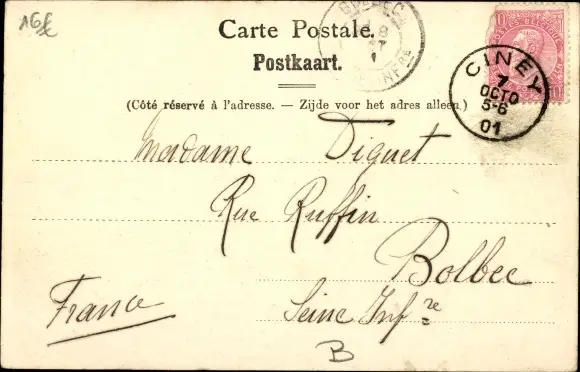 16£
Carte Postale.
Postkaart.
(Côté réservé à l'adresse. — Zijde voor het adres alleen.)
BOLBEC
8
CINEY
7
OCTO
5-6
01
10
10
Madame Diguet
Rue Ruffin
Bolbec
Seine Inf.re
France
B